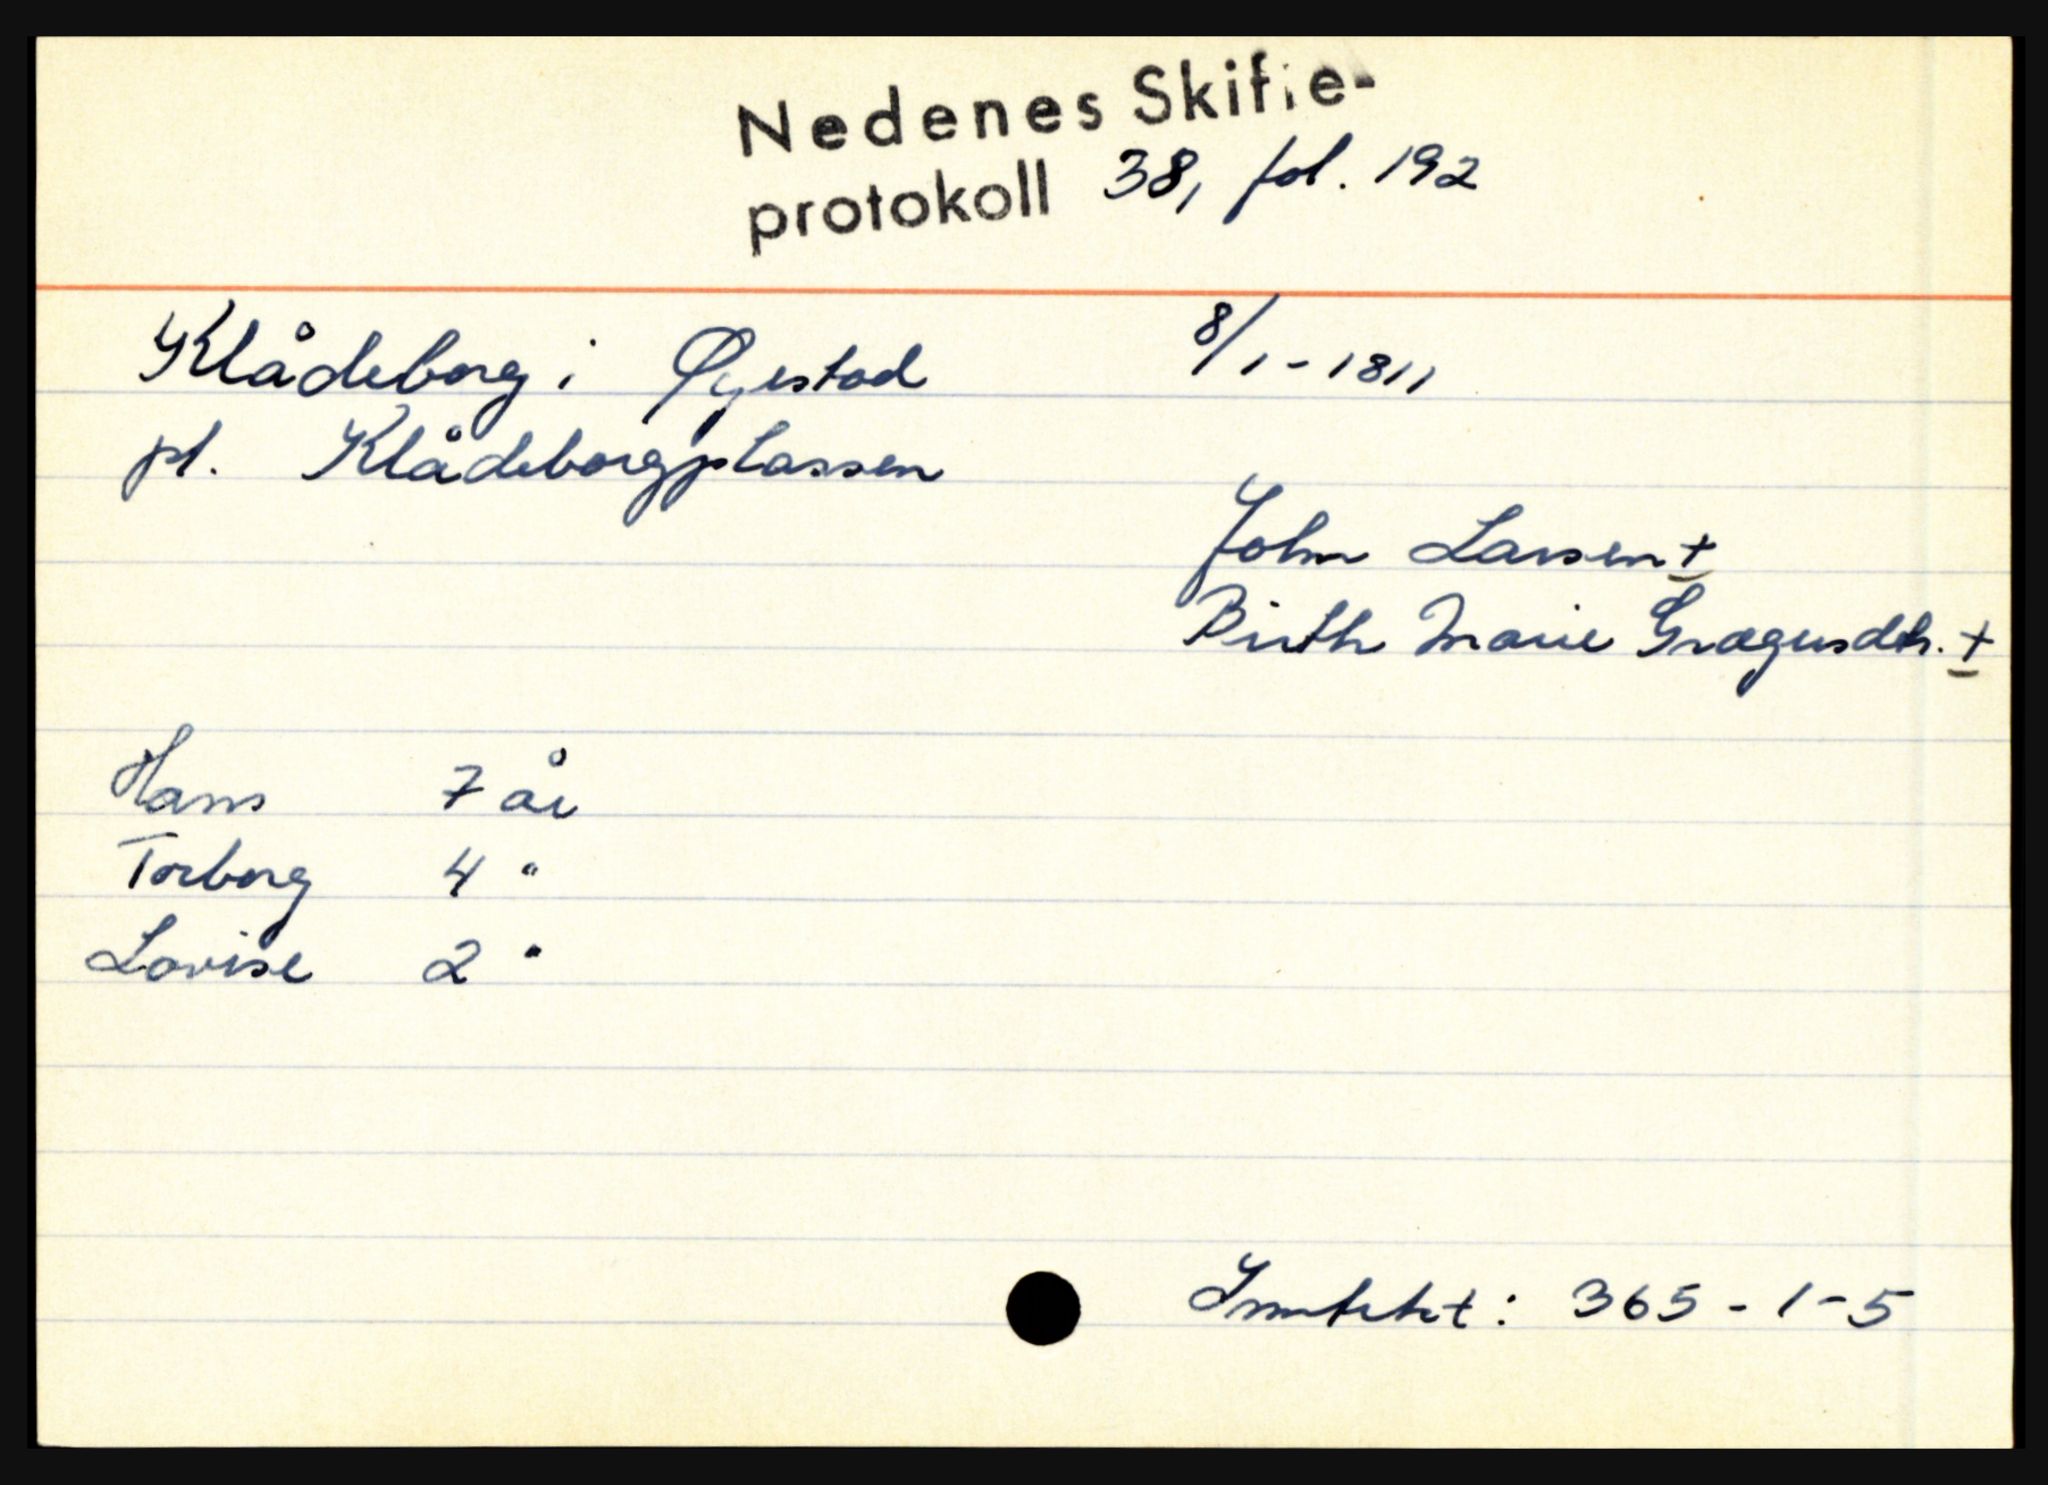 Nedenes Skifte-
protokoll 38, fol. 192
Klådeborg i Øyestad 8/1-1811
pl. Klådeborgplassen
John Larsen +
Birth Marie Gregersdtr. +
Hans 7 år
Torborg 4 "
Lovise 2 "
Inntekt: 365-1-5